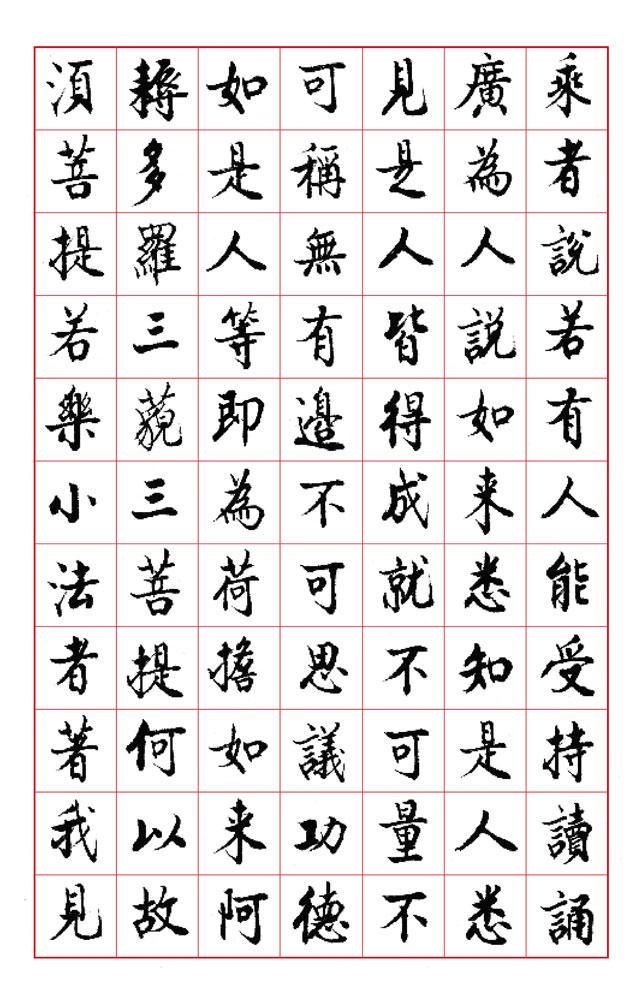 乘者說若有人能受持讀誦
廣為人説如来悉知是人悉
見是人皆得成就不可量不
可稱無有邊不可思議功德
如是人等即為荷擔如来阿
耨多羅三藐三菩提何以故
湏菩提若樂小法者著我見